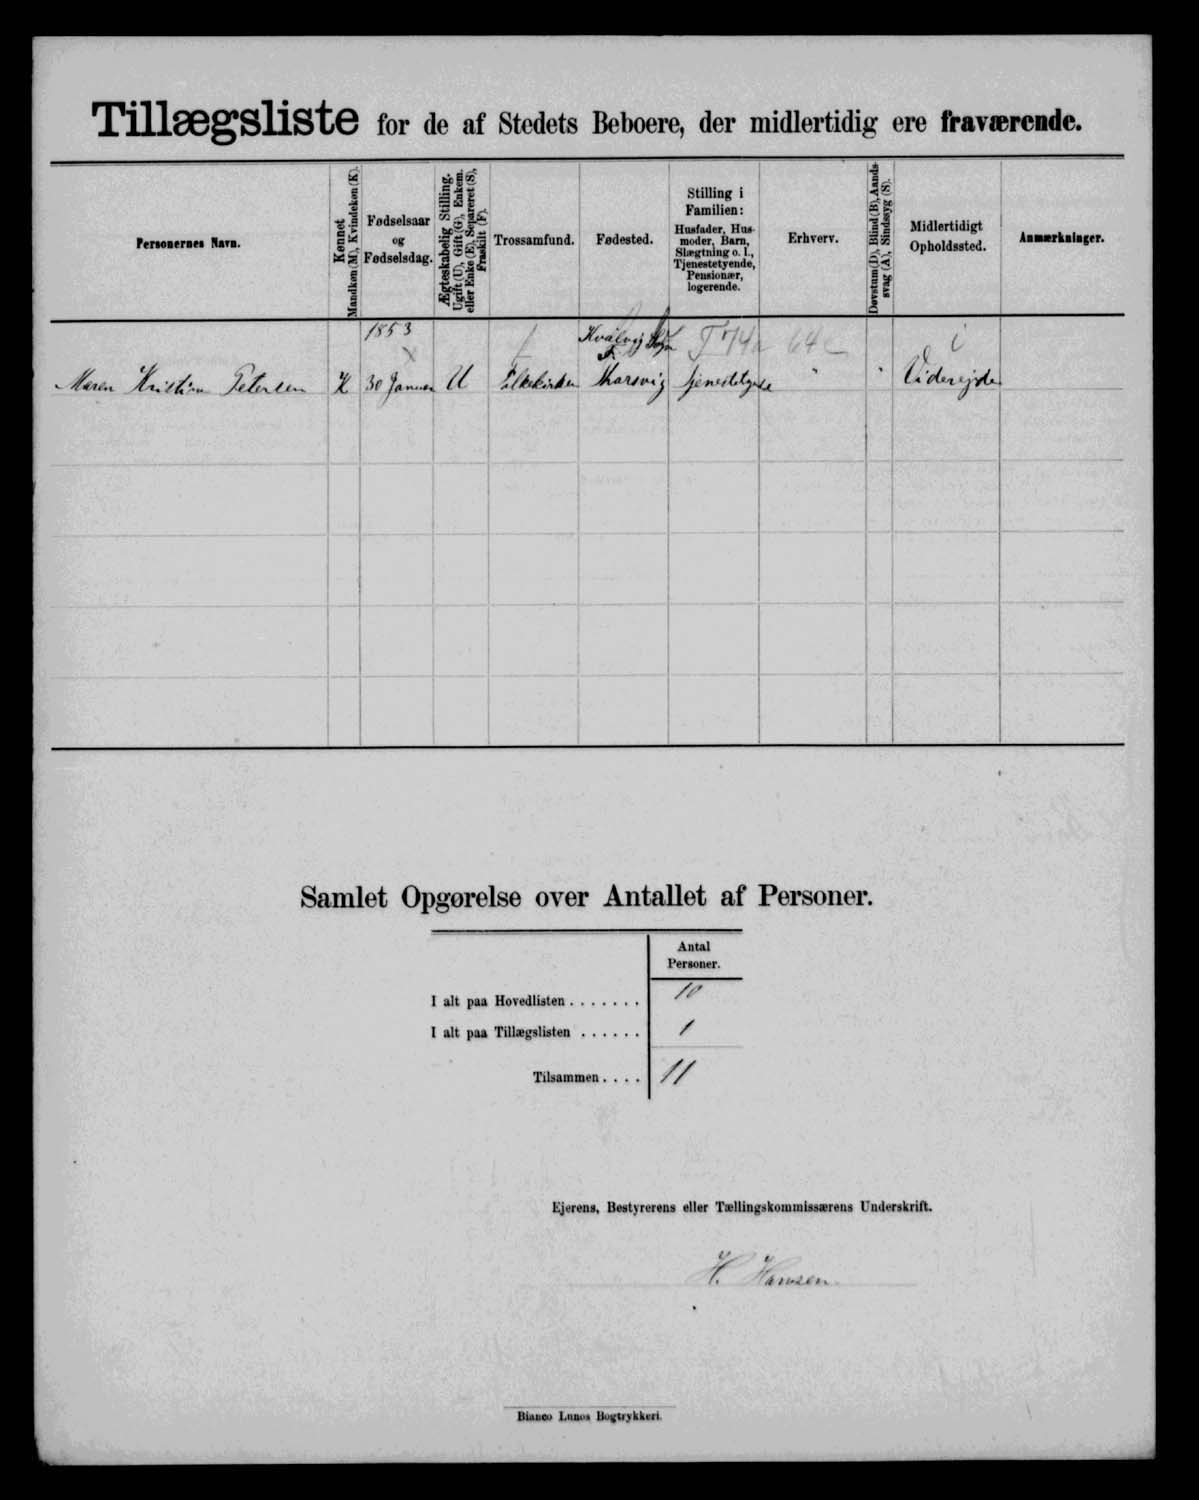 Tillægsliste for de af Stedets Beboere, der midlertidig ere fraværende.
Personernes Navn.
Kønnet
Mandkøn (M), Kvindekøn (K).
Fødselsaar
og
Fødselsdag.
Ægteskabelig Stilling.
Ugift (U), Gift (G), Enkem.
eller Enke (E), Separeret (S),
Fraskilt (F).
Trossamfund.
Fødested.
Stilling i
Familien:
Husfader, Hus-
moder, Barn,
Slægtning o. l.,
Tjenestetyende,
Pensionær,
logerende.
Erhverv.
Døvstum (D), Blind (B), Aands-
svag (A), Sindssyg (S).
Midlertidigt
Opholdssted.
Anmærkninger.
1853
Kvalvig Sogn
F. T 74a 64c i
Maren Kristine Petersen K 30 Januar U Folkekirken Norsvig tjenestetyende " " Viderejde
Samlet Opgørelse over Antallet af Personer.
Antal
Personer.
I alt paa Hovedlisten . . . . . . . 10
I alt paa Tillægslisten . . . . . . 1
Tilsammen . . . . 11
Ejerens, Bestyrerens eller Tællingskommissærens Underskrift.
H. Hansen
Bianco Lunos Bogtrykkeri.